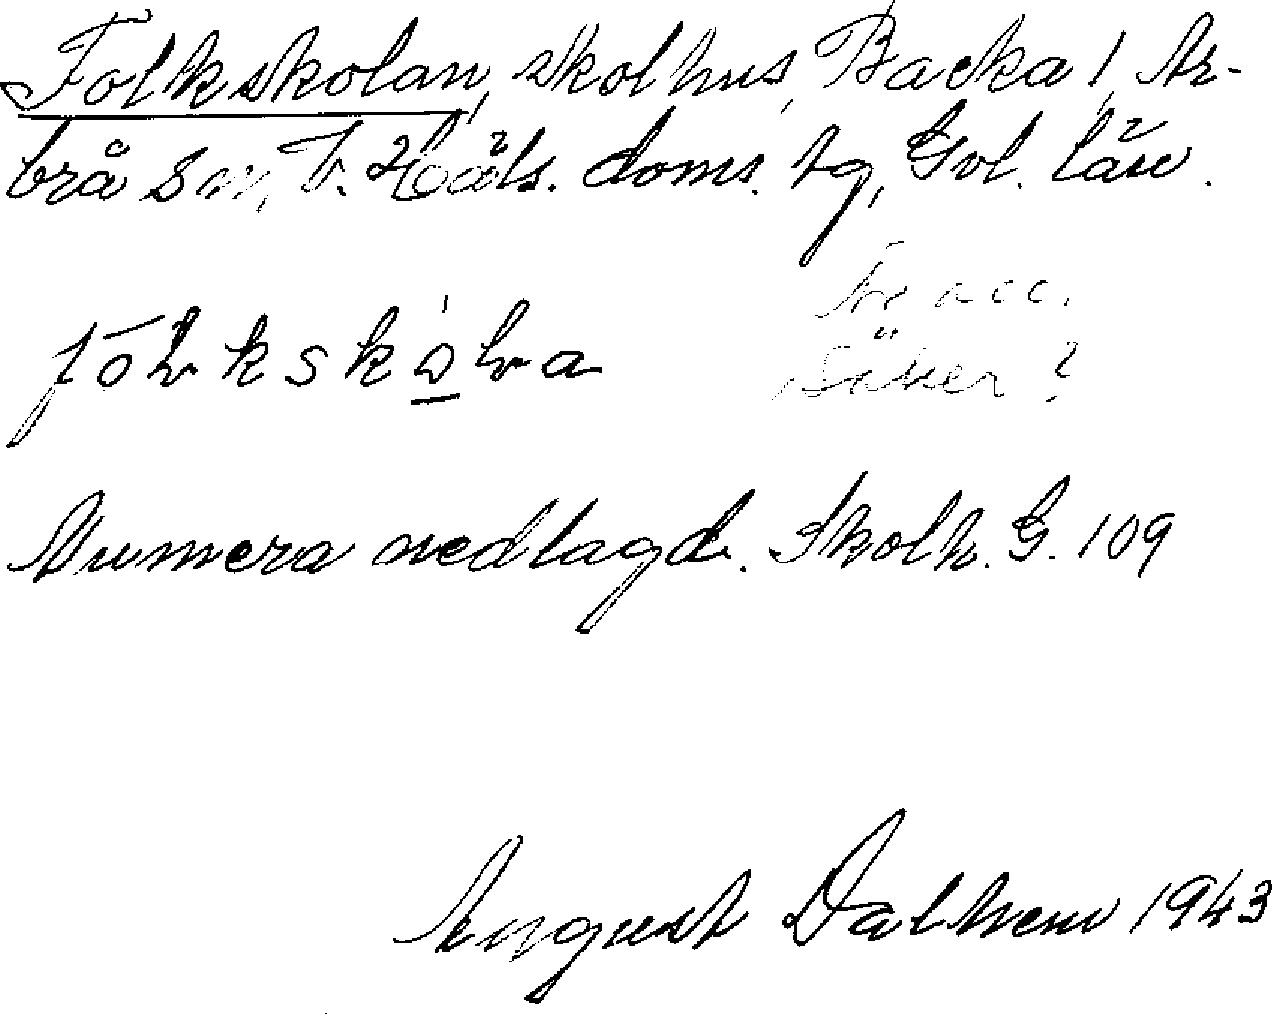 Folkskolan, skolhus, Backa 1, Ar-
brå sn, V. Häls. doms. tg, Gvl. län.
fōlkskòla
Är acc.
säker?
Numera nedlagd. Skolh. G. 109
August Dalhem 1943